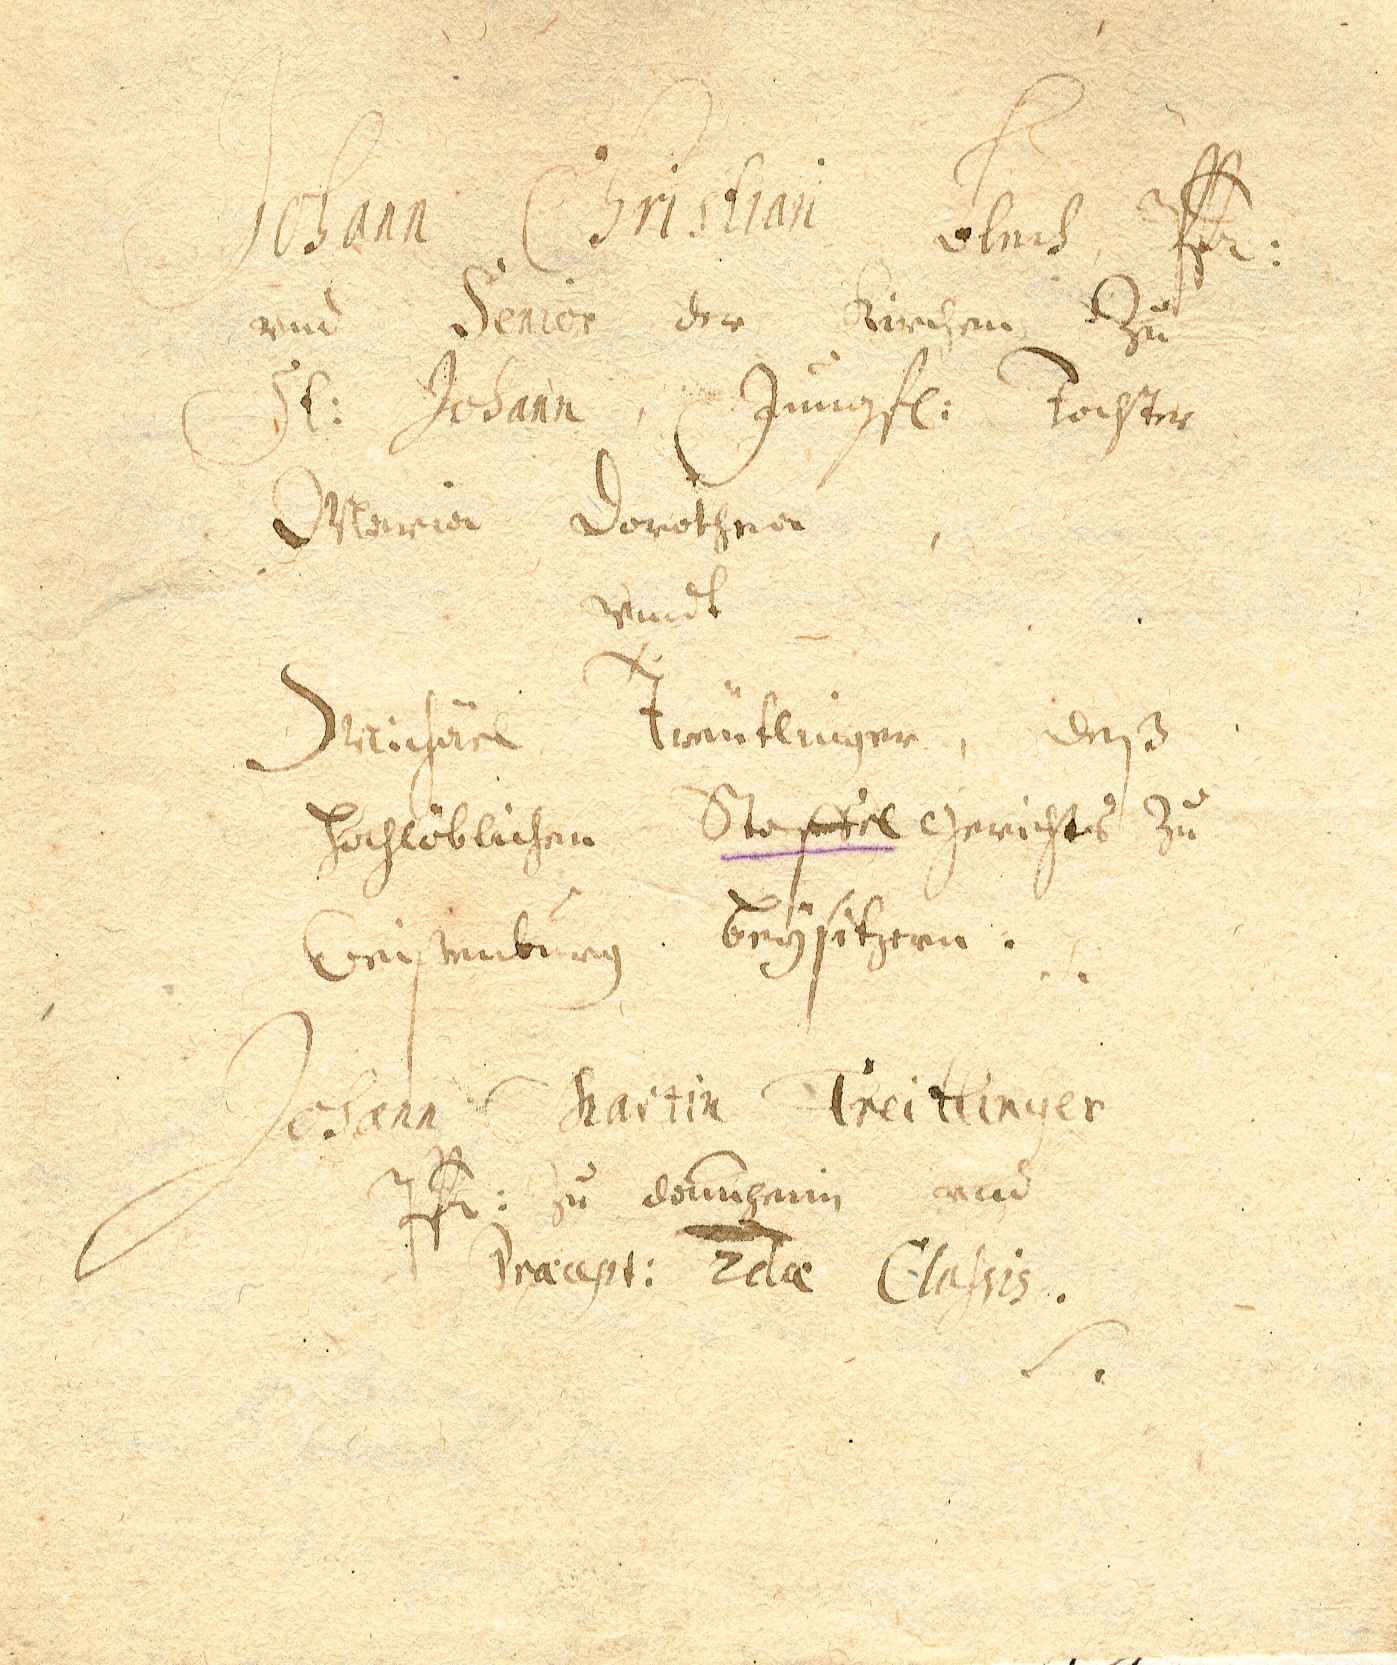 Johann Christian Pfr:
vnd Senior der Kirchen Zu
St: Johann, Jungfl: Tochter
Maria Dorothea,
vndt
Michäel Treütlinger, deß
Hochlöblichen Staffel Gerichts Zu
Beÿsitzern.
Johann Martin Treitlinger
Pfr: zu vnd
Præcept: 2dæ Classis.